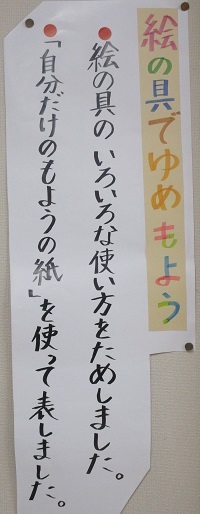 絵の具でゆめもよう
●絵の具のいろいろな使い方をためしました。
●「自分だけのもようの紙」を使って表しました。